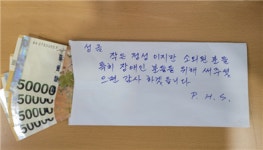 성금
작은 정성 이지만 소외된 분들
특히 장애인 분들을 위해 써주셨
으면 감사 하겠습니다.
P. M. S.
50000
50000
50000
50000